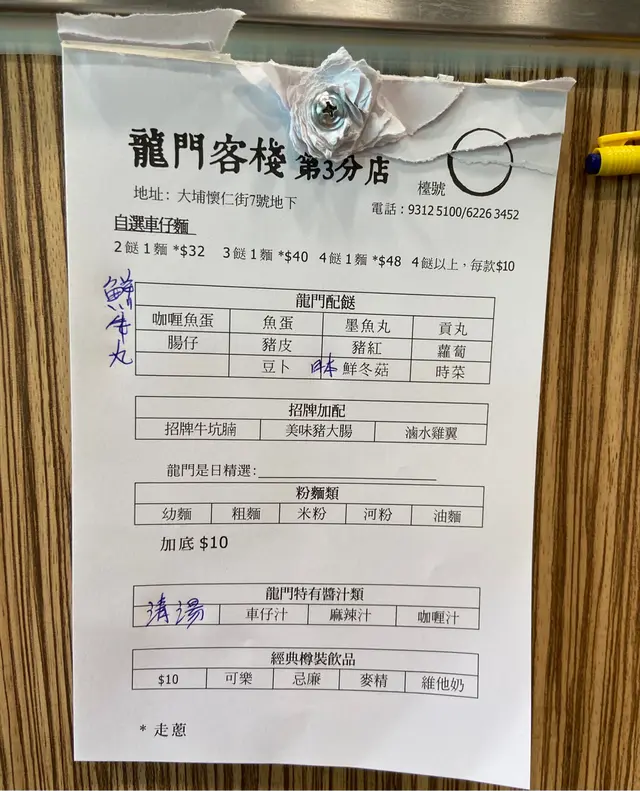 龍門客棧 第3分店
檯號
地址：大埔懷仁街7號地下
電話：9312 5100/6226 3452
自選車仔麵
2餸1麵 *$32 3餸1麵 *$40 4餸1麵 *$48 4餸以上，每款$10
鮮牛丸
龍門配餸
咖喱魚蛋 魚蛋 墨魚丸 貢丸
腸仔 豬皮 豬紅 蘿蔔
豆卜 日本 鮮冬菇 時菜
招牌加配
招牌牛坑腩 美味豬大腸 滷水雞翼
龍門是日精選:
粉麵類
幼麵 粗麵 米粉 河粉 油麵
加底 $10
龍門特有醬汁類
清湯 車仔汁 麻辣汁 咖喱汁
經典樽裝飲品
$10 可樂 忌廉 麥精 維他奶
* 走蔥